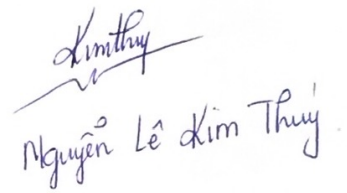 Kimthuy
Nguyễn Lê Kim Thuý